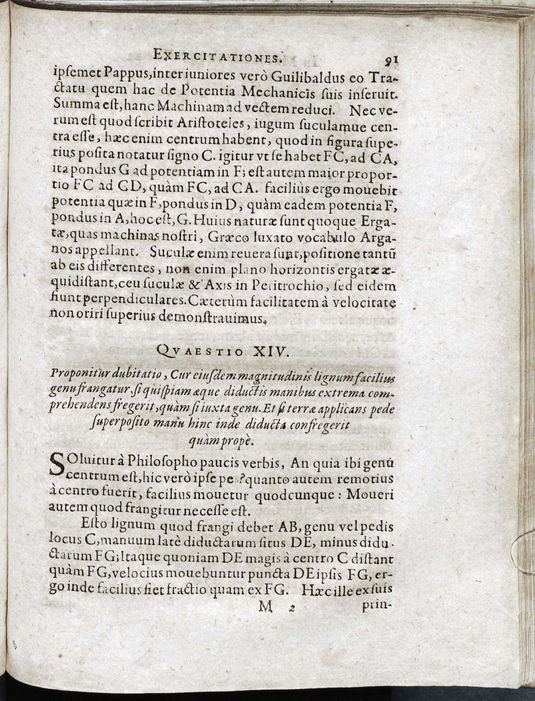 EXERCITATIONES. 91
ipsemet Pappus, inter iuniores verò Guilibaldus eo Tra-
ctatu quem hac de Potentia Mechanicis suis inseruit.
Summa est, hanc Machinam ad vectem reduci. Nec ve-
rum est quod scribit Aristoteles, iugum suculamue cen-
tra esse, hæc enim centrum habent, quod in figura supe-
rius posita notatur signo C. igitur vt se habet FC, ad CA,
ita pondus G ad potentiam in F; est autem maior propor-
tio FC ad CD, quàm FC, ad CA. facilius ergo mouebit
potentia quæ in F, pondus in D, quàm eadem potentia F,
pondus in A, hoc est, G. Huius naturæ sunt quoque Erga-
tæ, quas machinas nostri, Græco luxato vocabulo Arga-
nos appellant. Suculæ enim reuera sunt, positione tantũ
ab eis differentes, non enim plano horizontis ergatæ æ-
quidistant, ceu suculæ & Axis in Peritrochio, sed eidem
fiunt perpendiculares. Cæterùm facilitatem à velocitate
non oriri superius demonstrauimus.
QVAESTIO XIV.
Proponitur dubitatio, Cur eiusdem magnitudinis lignum facilius
genu frangatur, si quispiam æque diductis manibus extrema com-
prehendens fregerit, quàm si iuxta genu. Et si terræ applicans pede
superposito manu hinc inde diducta confregerit
quàm propè.
SOluitur à Philosopho paucis verbis, An quia ibi genu
centrum est, hic verò ipse pes? quanto autem remotius
à centro fuerit, facilius mouetur quodcunque: Moueri
autem quod frangitur necesse est.
Esto lignum quod frangi debet AB, genu vel pedis
locus C, manuum latè diductarum situs DE, minus didu-
ctarum FG; Itaque quoniam DE magis à centro C distant
quàm FG, velocius mouebuntur puncta DE ipsis FG, er-
go inde facilius fiet fractio quam ex FG. Hæc ille ex suis
M 2 prin-